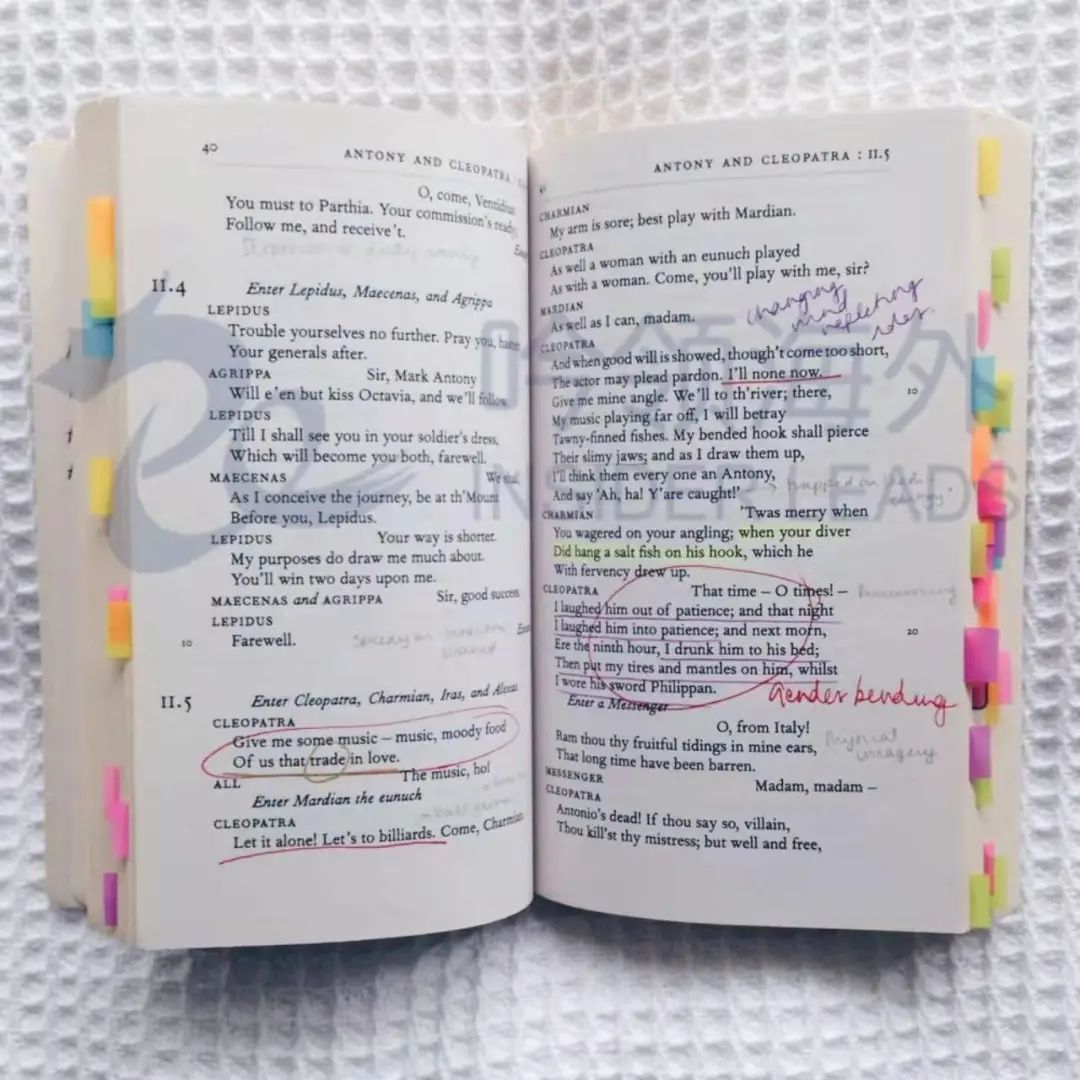 40
ANTONY AND CLEOPATRA :
O, come, Ventidius
You must to Parthia. Your commission's ready;
Follow me, and receive't.
II.4
Enter Lepidus, Maecenas, and Agrippa
LEPIDUS
Trouble yourselves no further. Pray you,
Your generals after.
AGRIPPA Sir, Mark Antony
Will e'en but kiss Octavia, and we'll follow
LEPIDUS
Till I shall see you in your soldier's dress,
Which will become you both, farewell.
MAECENAS We shall,
As I conceive the journey, be at th'Mount
Before you, Lepidus.
LEPIDUS Your way is shorter.
My purposes do draw me much about.
You'll win two days upon me.
MAECENAS and AGRIPPA Sir, good success
LEPIDUS
10 Farewell.
II.5
Enter Cleopatra, Charmian, Iras, and Alexas
CLEOPATRA
Give me some music – music, moody food
Of us that trade in love.
ALL The music, ho!
Enter Mardian the eunuch
CLEOPATRA
Let it alone! Let's to billiards. Come, Charmian
ANTONY AND CLEOPATRA : II.5
CHARMIAN
My arm is sore; best play with Mardian.
CLEOPATRA
As well a woman with an eunuch played
As with a woman. Come, you'll play with me, sir?
MARDIAN
As well as I can, madam.
changing
mind
reflecting
CLEOPATRA
And when good will is showed, though't come too short,
The actor may plead pardon. I'll none now.
Give me mine angle. We'll to th'river; there, 10
My music playing far off, I will betray
Tawny-finned fishes. My bended hook shall pierce
Their slimy jaws; and as I draw them up,
I'll think them every one an Antony,
And say 'Ah, ha! Y'are caught!'
CHARMIAN 'Twas merry when
You wagered on your angling; when your diver
Did hang a salt fish on his hook, which he
With fervency drew up.
CLEOPATRA That time – O times! –
I laughed him out of patience; and that night
I laughed him into patience; and next morn, 20
Ere the ninth hour, I drunk him to his bed;
Then put my tires and mantles on him, whilst
I wore his sword Philippan.
Gender bending
Enter a Messenger
O, from Italy!
Ram thou thy fruitful tidings in mine ears,
Physical
imagery
That long time have been barren.
MESSENGER Madam, madam –
CLEOPATRA
Antonio's dead! If thou say so, villain,
Thou kill'st thy mistress; but well and free,